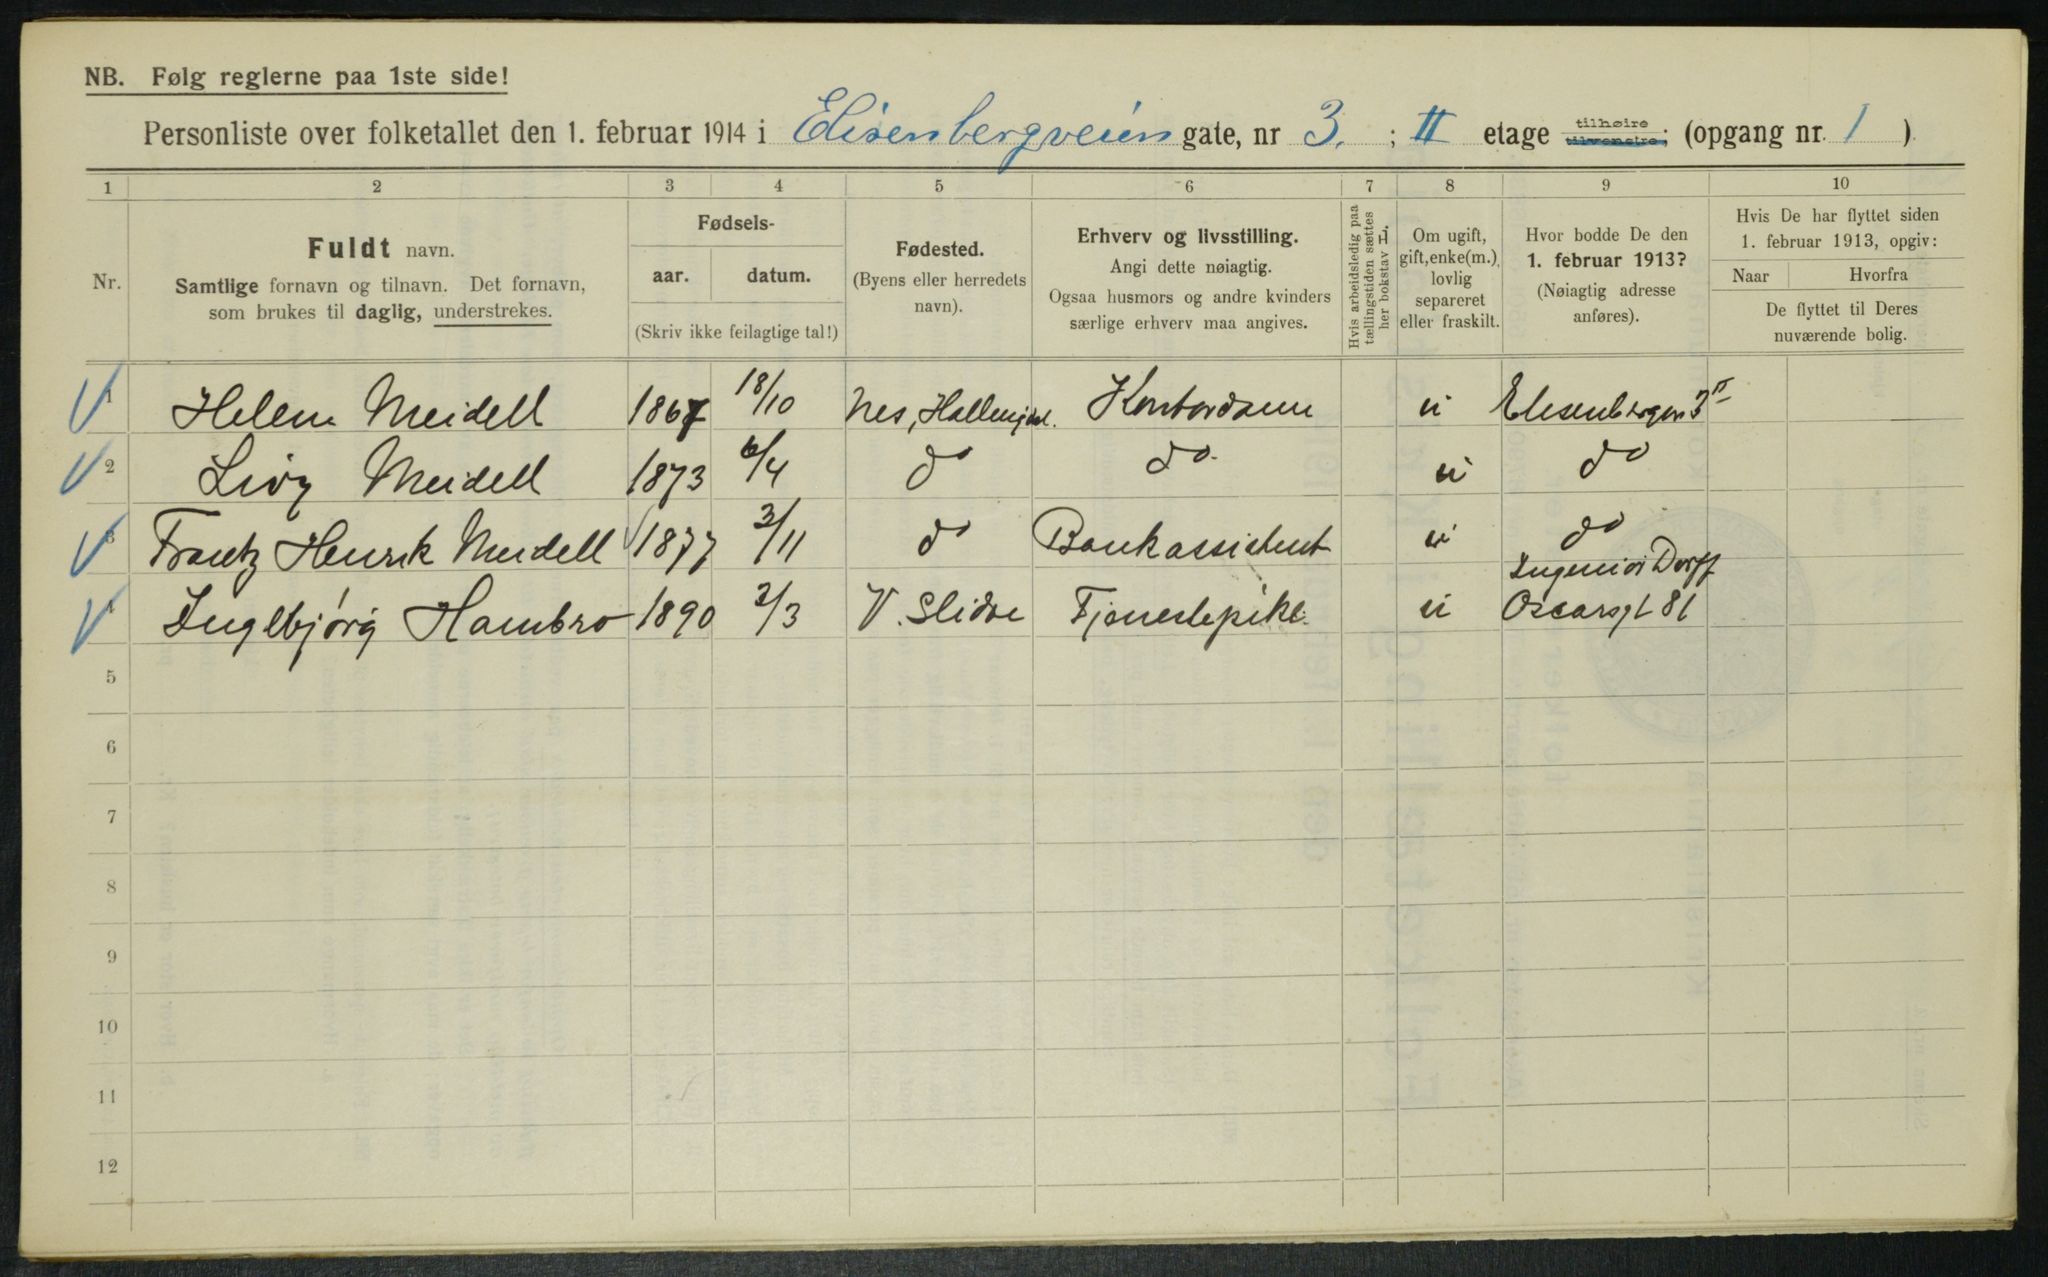 NB. Følg reglerne paa 1ste side!
Personliste over folketallet den 1. februar 1914 i Elisenbergveien gate, nr 3. ; II etage tilhøire tilvenstre; (opgang nr. 1 )
1 2 3 4 5 6 7 8 9 10
Nr.
Fuldt navn.
Samtlige fornavn og tilnavn. Det fornavn,
som brukes til daglig, understrekes.
Fødsels-
aar. datum.
(Skriv ikke feilagtige tal!)
Fødested.
(Byens eller herredets
navn).
Erhverv og livsstilling.
Angi dette nøiagtig.
Ogsaa husmors og andre kvinders
særlige erhverv maa angives.
Hvis arbeidsledig paa
tællingstiden sættes
her bokstav L.
Om ugift,
gift, enke(m.),
lovlig
separeret
eller fraskilt.
Hvor bodde De den
1. februar 1913?
(Nøiagtig adresse
anføres).
Hvis De har flyttet siden
1. februar 1913, opgiv:
Naar Hvorfra
De flyttet til Deres
nuværende bolig.
1 Helene Meidell 1867 18/10 Nes, Hallingdal. Kontordame u Elisenbergvn 3 II
2 Livy Meidell 1873 6/4 do do. u do
3 Frantz Henrik Meidell 1877 3/11 do Bankassistent u do
Ingeniør Dorff
4 Ingebjørg Hambro 1890 2/3 V. Slidre Tjenestepike u Oscarsgt 81
5
6
7
8
9
10
11
12